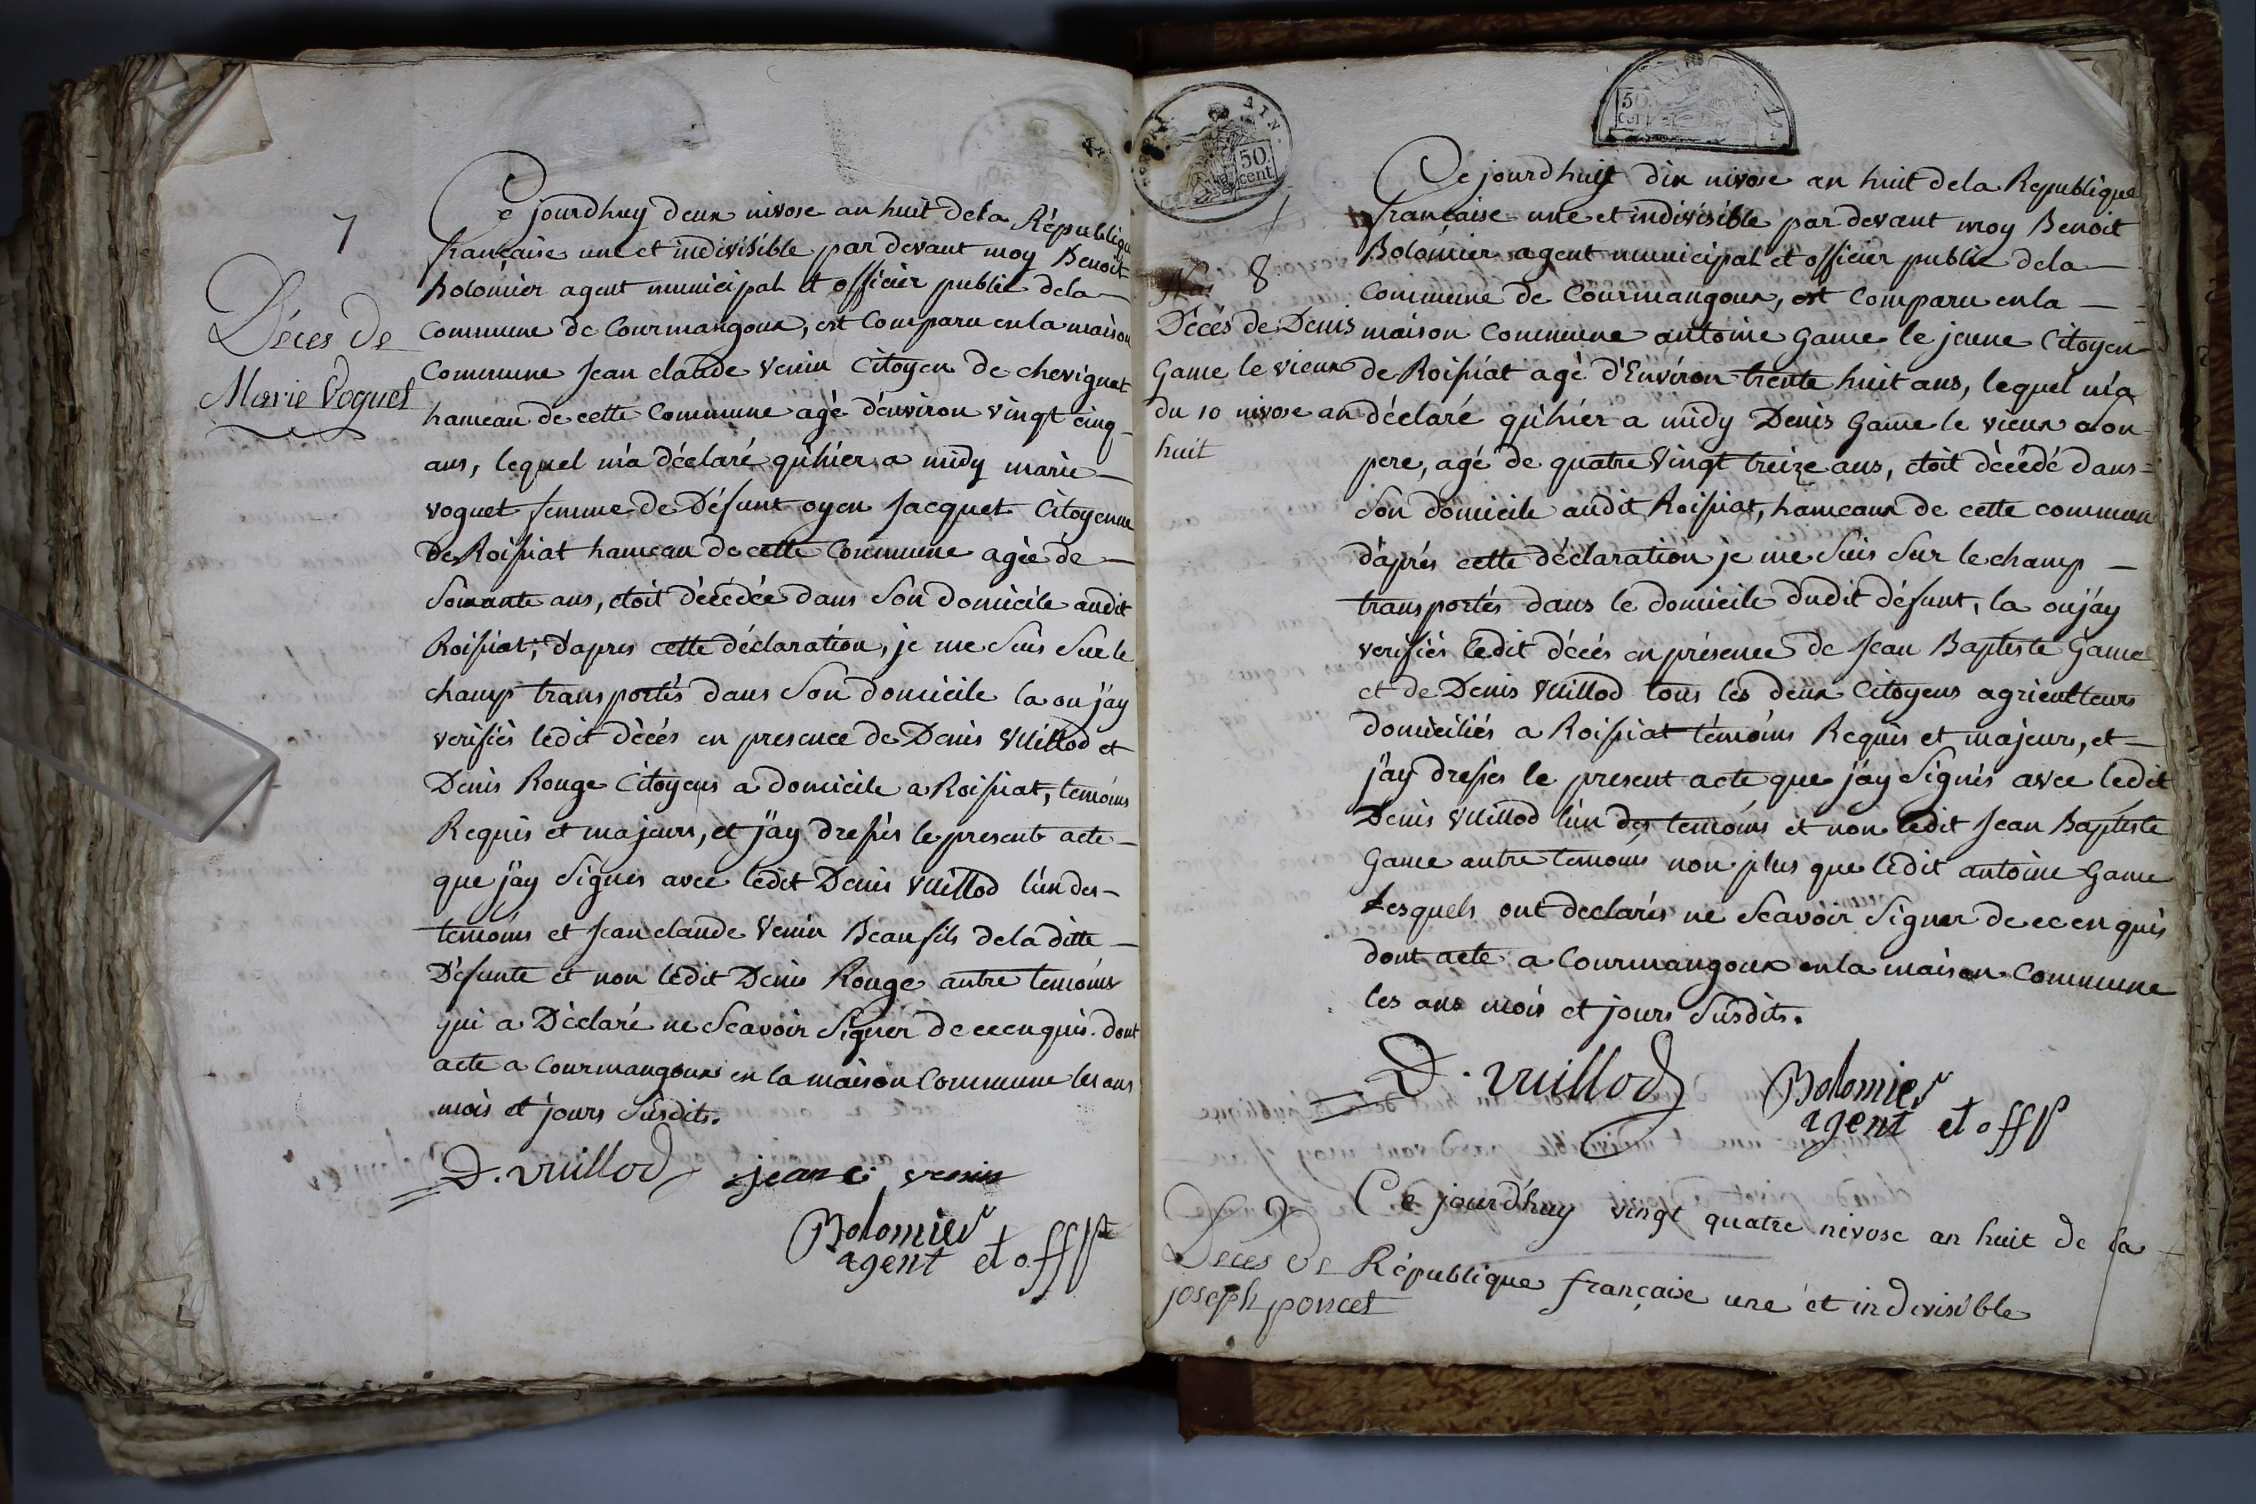 7
Déces de
Marie Voguet
Ce jourdhuy deux nivose an huit dela République
francaise une et indivisible par devant moy Benoit
Bolomier agent municipal et officier public dela
commune de Courmangoux, est Comparu en la maison
Commune Jean claude Venin Citoyen de chevignat
hameau de cette Commune agé denviron vingt cinq
ans, lequel m'a déclaré qu'hier a midy marie
voguet femme de Défunt oyen Jacquet Citoyenne
De Roissiat hameau de cette Commune agée de
Soixante ans, etoit décédée dans Son Domicile audit
Roissiat; Dapres cette déclaration, je me Suis Sur le
champ transportés dans Son domicile la ou j'ay
verifiés ledit décés en presence de Denis Vuillod et
Denis Rouge Citoyens a domicile a Roissiat, temoins
Requis et majeurs, et j'ay dressés le present acte
que j'ay Signés avec ledit Denis Vuillod l'un des
temoins et Jean claude Venin Beau fils dela ditte
Défunte et non ledit Denis Rouge autre temoins
qui a Déclaré ne Scavoir Signer de ce enquis. dont
acte a Courmangoux en la maison Commune les ans
mois et jours Susdits.
D. vuillod jean c. venin
Bolomier
agent et off p
AIN.
50
cent
50
cent
8
Décés de Denis
Game le vieux
du 10 nivose an
huit
Ce jourdhuy dix nivose an huit dela Republique
francaise une et indivisible par devant moy Benoit
Bolomier agent municipal et officier public dela
Commune de Courmangoux, est Comparu en la
maison Commune antoine Game le jeune Citoyen
de Roissiat agé d'Environ trente huit ans, lequel m'a
déclaré qu'hier a midy Denis Game le vieux Son
pere, agé de quatre Vingt treize ans, etoit décédé dans
Son domicile audit Roissiat, hameaux de cette commune
d'aprés cette déclaration je me Suis Sur le champ
transportés dans le domicile dudit défunt, la ou j'ay
verifiés ledit décés en présence de Jean Baptiste Game
et de Denis Vuillod tous les deux Citoyens agriculteurs
domiciliés a Roissiat témoins Requis et majeurs, et
j'ay dressés le present acte que j'ay Signés avec ledit
Denis Vuillod l'un des temoins et non ledit Jean Baptiste
Game autre temoins non plus que ledit antoine Game
Lesquels ont declarés ne Scavoir Signer de ce enquis
dont acte a Courmangoux en la maison Commune
les ans mois et jours Susdits.
D. vuillod Bolomier
agent et off p
9
Déces de
joseph poncet
Ce jourd'huy vingt quatre nivose an huit de la
République française une et indivisible